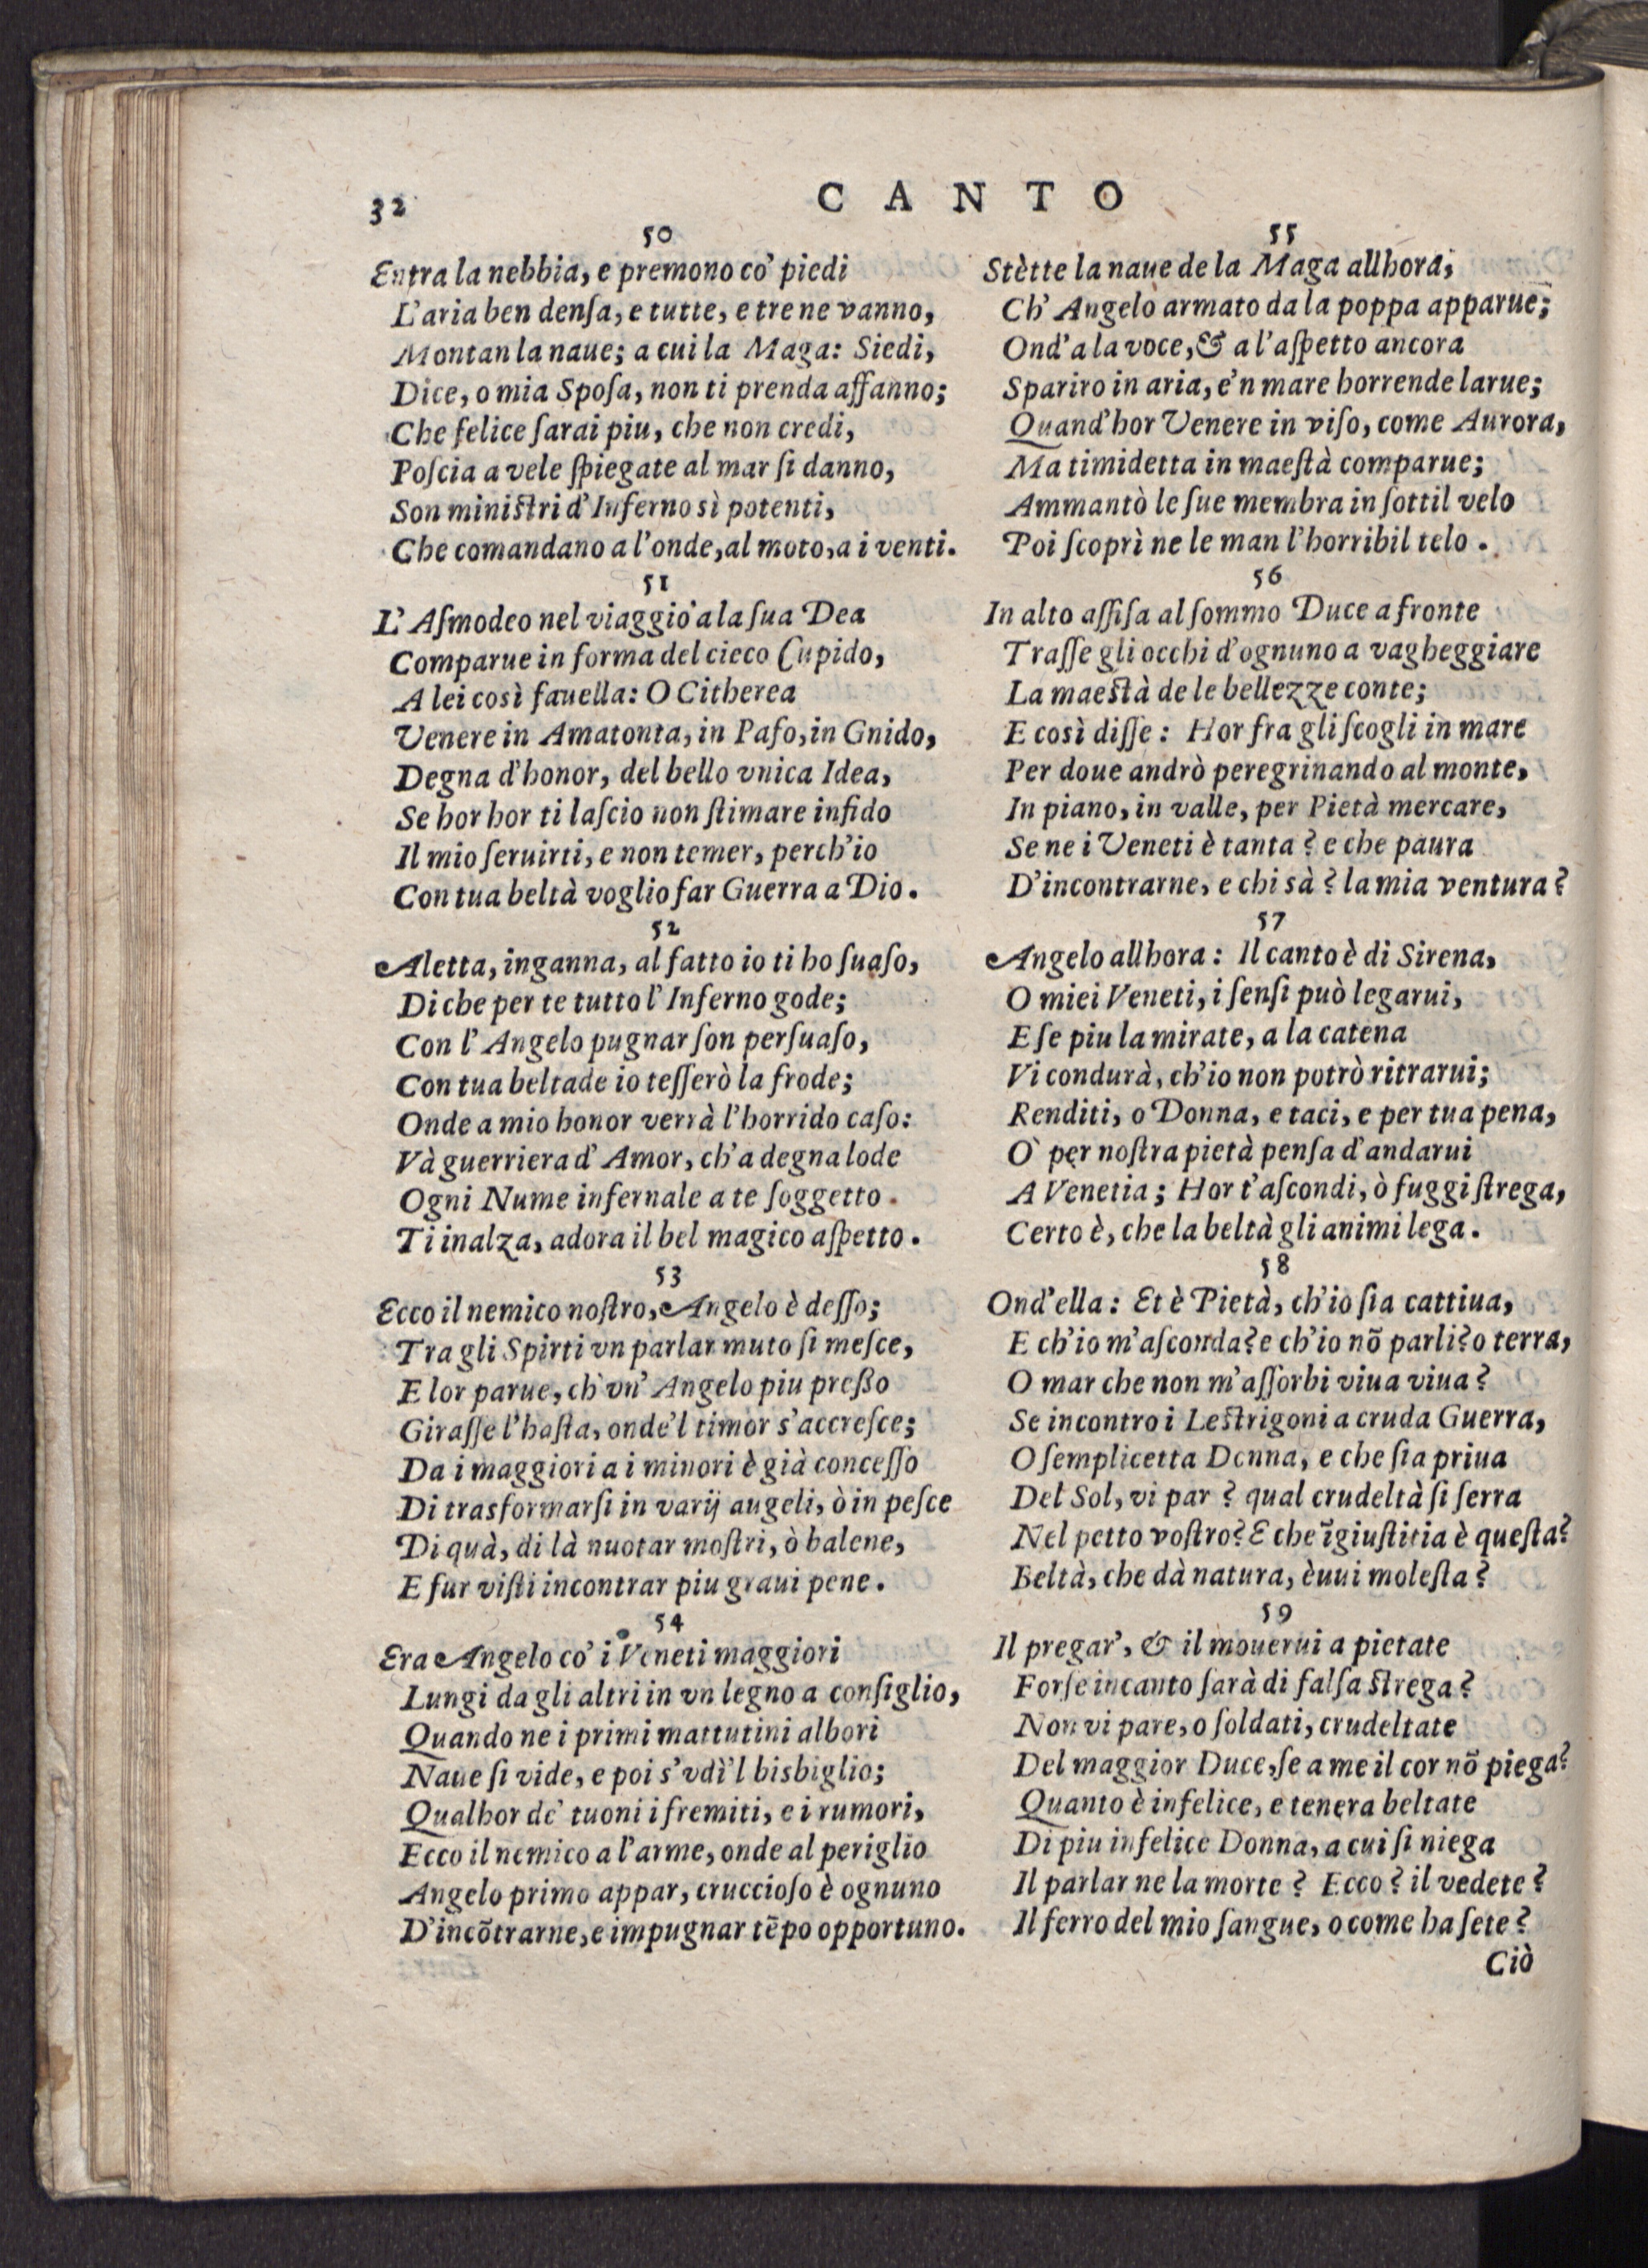 32
CANTO
50
Entra la nebbia, e premono co' piedi
L'aria ben denſa, e tutte, e tre ne vanno,
Montan la naue; a cui la Maga: Siedi,
Dice, o mia Spoſa, non ti prenda affanno;
Che felice ſarai piu, che non credi,
Poſcia a vele ſpiegate al mar ſi danno,
Son miniſtri d'Inferno sì potenti,
Che comandano a l'onde, al moto, a i venti.
51
L'Aſmodeo nel viaggio a la ſua Dea
Comparue in forma del cieco Cupido,
A lei così fauella: O Citherea
Venere in Amatonta, in Pafo, in Gnido,
Degna d'honor, del bello vnica Idea,
Se hor hor ti laſcio non ſtimare infido
Il mio ſeruirti, e non temer, perch'io
Con tua beltà voglio far Guerra a Dio.
52
Aletta, inganna, al fatto io ti ho ſuaſo,
Di che per te tutto l'Inferno gode;
Con l'Angelo pugnar ſon perſuaſo,
Con tua beltade io teſſerò la frode;
Onde a mio honor verrà l'horrido caſo:
Và guerriera d'Amor, ch'a degna lode
Ogni Nume infernale a te ſoggetto.
Ti inalza, adora il bel magico aſpetto.
53
Ecco il nemico noſtro, Angelo è deſſo;
Tra gli Spirti vn parlar muto ſi meſce,
E lor parue, ch'vn'Angelo piu preßo
Giraſſe l'haſta, onde'l timor s'accreſce;
Da i maggiori a i minori è già conceſſo
Di trasformarſi in varij augeli, ò in peſce
Di quà, di là nuotar moſtri, ò balene,
E fur viſti incontrar piu graui pene.
54
Era Angelo co' i Veneti maggiori
Lungi da gli altri in vn legno a conſiglio,
Quando ne i primi mattutini albori
Naue ſi vide, e poi s'vdì'l bisbiglio;
Qualhor de' tuoni i fremiti, e i rumori,
Ecco il nemico a l'arme, onde al periglio
Angelo primo appar, cruccioſo è ognuno
D'incõtrarne, e impugnar tẽpo opportuno.
55
Stètte la naue de la Maga allhora,
Ch'Angelo armato da la poppa apparue;
Ond'a la voce, & a l'aſpetto ancora
Spariro in aria, e'n mare horrende larue;
Quand'hor Venere in viſo, come Aurora,
Ma timidetta in maeſtà comparue;
Ammantò le ſue membra in ſottil velo
Poi ſcoprì ne le man l'horribil telo.
56
In alto aſſiſa al ſommo Duce a fronte
Traſſe gli occhi d'ognuno a vagheggiare
La maeſtà de le bellezze conte;
E così diſſe: Hor fra gli ſcogli in mare
Per doue andrò peregrinando al monte,
In piano, in valle, per Pietà mercare,
Se ne i Veneti è tanta? e che paura
D'incontrarne, e chi sà? la mia ventura?
57
Angelo allhora: Il canto è di Sirena,
O miei Veneti, i ſenſi può legarui,
E ſe piu la mirate, a la catena
Vi condurà, ch'io non potrò ritrarui;
Renditi, o Donna, e taci, e per tua pena,
O' per noſtra pietà penſa d'andarui
A Venetia; Hor t'aſcondi, ò fuggi ſtrega,
Certo è, che la beltà gli animi lega.
58
Ond'ella: Et è Pietà, ch'io ſia cattiua,
E ch'io m'aſconda? e ch'io nõ parli? o terra,
O mar che non m'aſſorbi viua viua?
Se incontro i Leſtrigoni a cruda Guerra,
O ſemplicetta Donna, e che ſia priua
Del Sol, vi par? qual crudeltà ſi ſerra
Nel petto voſtro? E che ĩgiuſtitia è queſta?
Beltà, che dà natura, èuui moleſta?
59
Il pregar', & il mouerui a pietate
Forſe incanto ſarà di falſa ſtrega?
Non vi pare, o ſoldati, crudeltate
Del maggior Duce, ſe a me il cor nõ piega?
Quanto è infelice, e tenera beltate
Di piu infelice Donna, a cui ſi niega
Il parlar ne la morte? Ecco? il vedete?
Il ferro del mio ſangue, o come ha ſete?
Ciò